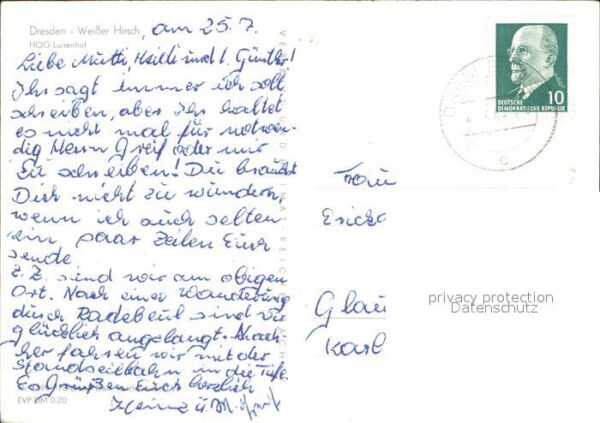 Dresden - Weißer Hirsch, am 25.7.
HOG Luisenhof
Liebe Mutti, Heidi und l. Günther!
Ihr sagt immer ich soll
schreiben, aber Ihr haltet
es nicht mal für notwen-
dig Herrn Greif oder mir
zu schreiben! Du brauchst
Dich nicht zu wundern,
wenn ich auch selten
ein paar Zeilen Euch
sende
z.Z. sind wir am obigen
Ort. Nach einer Wanderung
durch Radebeul sind wir
glücklich angelangt. Nach-
her fahren wir mit der
Standseilbahn in die Tiefe.
Es grüßen Euch herzlich
Heinz u.
EVP DM 0,20
10
DEUTSCHE
DEMOKRATISCHE REPUBLIK
Frau
Glau
Karl
privacy protection
Datenschutz